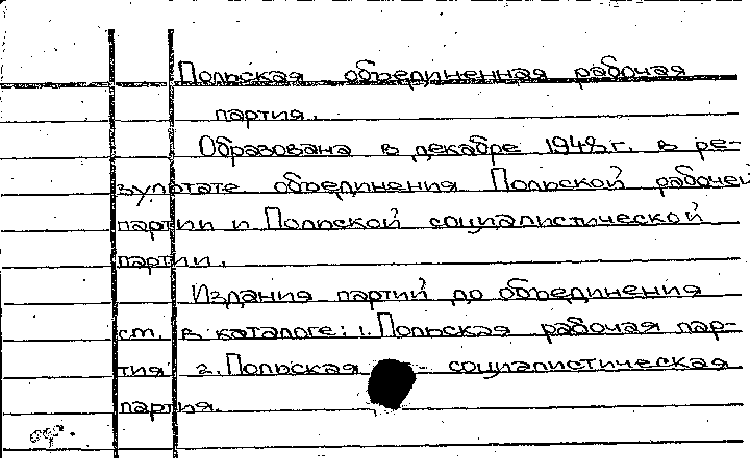 Польская объединенная рабочая
партия.
Образована в декабре 1948 г. в ре-
зультате объединения Польской рабочей
партии и Польской социалистической
партии.
Издания партий до объединения
см. в каталоге: 1. Польская рабочая пар-
тия 2. Польская социалистическая
партия.